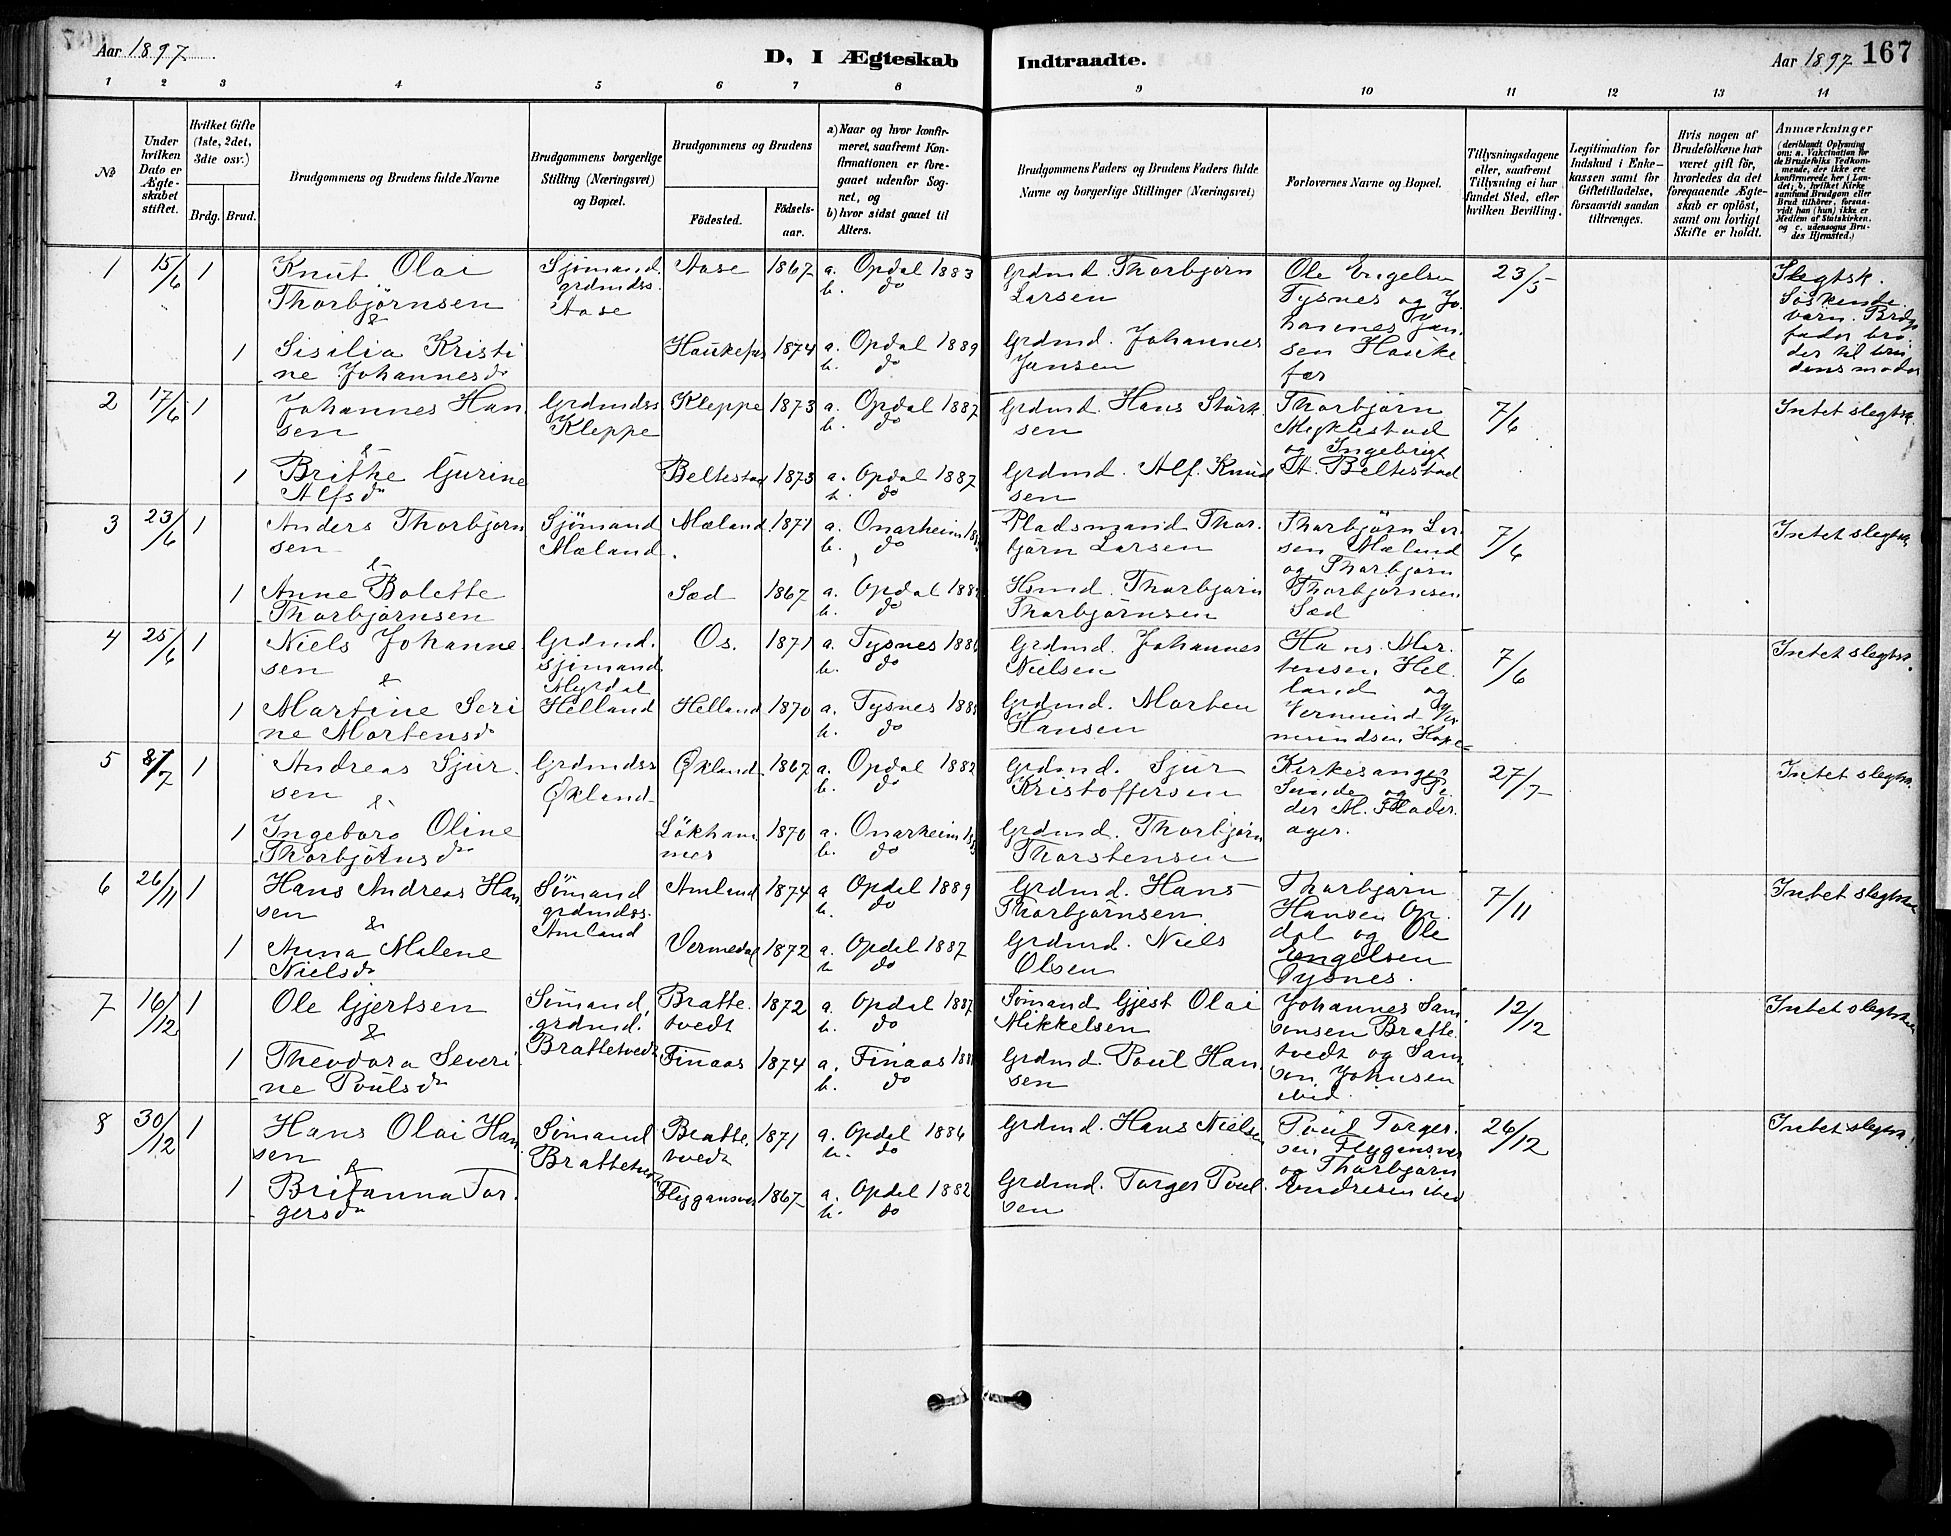 Aar 1897
D, I Ægteskab
Indtraadte.
Aar 1897
167
1 2 3 4 5 6 7 8 9 10 11 12 13 14
No
Under hvilken Dato er Ægteskabet stiftet.
Hvilket Gifte (1ste, 2det, 3die osv.)
Brdg. Brud.
Brudgommens og Brudens fulde Navne
Brudgommens borgerlige Stilling (Næringsvei) og Bopæl.
Brudgommens og Brudens
Födested.
Födselsaar.
a) Naar og hvor konfirmeret, saafremt Konfirmationen er foregaaet udenfor Sognet, og
b) hvor sidst gaaet til Alters.
Brudgommens Faders og Brudens Faders fulde Navne og borgerlige Stillinger (Næringsvei)
Forlovernes Navne og Bopæl.
Tillysningsdagene eller, saafremt Tillysning ei har fundet Sted, efter hvilken Bevilling.
Legitimation for Indskud i Enkekassen samt for Giftetilladelse, forsaavidt saadan tiltrænges.
Hvis nogen af Brudefolkene har været gift för, hvorledes da det foregaaende Ægteskab er oplöst, samt om lovligt Skifte er holdt.
Anmærkninger (deriblandt Oplysning om: a. Vakcination for de Brudefolks Vedkommende, der ikke ere konfirmerede her i Landet; b. hvilket Kirkesamfund Brudgom eller Brud tilhörer, forsaavidt han (hun) ikke er Medlem af Statskirken, og c. udensogns Brudes Hjemsted.)
1 15/6 1
Knut Olai Thorbjørnsen
&
Sjømand grdmdss. Aase
Aase 1867
a. Opdal 1883
b. do
Grdmd. Thorbjørn Larsen
Ole Engelsen Tysnes og Johannes Jansen Haukefær
23/5
Slegtsk. Søskendebørn. Brdgs fader broder til brudens moder
1
Sisilia Kristine Johannesdr
Haukefær 1874
a. Opdal 1889
b. do
Grdmd. Johannes Jansen
2 17/6 1
Johannes Hansen
&
Grdmdss Kleppe
Kleppe 1873
a. Opdal 1887
b. do
Grdmd. Hans Størksen
Thorbjørn Meklestad og Ingebrigt A. Beltestad
7/6
Intet slegtsk.
1
Brithe Gurine Alfsdr
Beltestad 1873
a. Opdal 1887
b. do
Grdmd. Alf Knudsen
3 23/6 1
Anders Thorbjørnsen
&
Sjømand Mæland
Mæland. 1871
a. Onarheim
b. do
Pladsmand Thorbjørn Larsen
Thorbjørn Larsen Mæland og Thorbjørn Thorbjørnsen Sæd
7/6
Intet slegtsk
1
Anne Bolette Thorbjørnsen
Sæd 1867
a. Opdal
b. do
Hsmd. Thorbjørn Thorbjørnsen
4 25/6 1
Niels Johannesen
&
Grdmd. sjømand Myrdal
Os. 1871
a. Tysnes 1886
b. do
Grdmd. Johannes Nielsen
Hans Mortensen Helland og Vermund Vermundsen Hope
7/6
Intet slegtsk.
1
Martine Serine Mortensdr
Helland
Helland 1870
a. Tysnes
b. do
Grdmd. Morten Hansen
5 8/7 1
Andreas Sjursen
&
Grdmdss Økland
Økland 1867
a. Opdal 1882
b. do
Grdmd. Sjur Kristoffersen
Kirkesanger og Peder M. Fladerager.
27/7
Intet slegtsk.
1
Ingeborg Oline Thorbjørnsdr
Løkhammer 1870
a. Onarheim
b. do
Grdmd. Thorbjørn Thorstensen
6 26/11 1
Hans Andreas Hansen
&
Sømand grdmdss. Amland
Amland 1874
a Opdal 1889
b. do
Grdmd. Hans Thorbjørnsen
Thorbjørn Hansen Opdal og Ole Engelsen Tysnes.
7/11
Intet slegtsk
1
Anna Malene Nielsdr
Vermedal 1872
a. Opdal 1887
b. do
Grdmd. Niels Olsen
7 16/12 1
Ole Gjertsen
&
Sømand, grdmd. Brattetvedt
Brattetvedt 1872
a. Opdal 1887
b. do
Sømand Gjest Olai Mikkelsen
Johannes Samsonsen Brattetvedt og Samson Johnsen ibid.
12/12
Intet slegtsk
1
Theodora Severine Poulsdr
Finaas 1874
a. Finaas
b. do
Grdmd Poul Hansen
8 30/12 1
Hans Olai Hansen
&
Sømand Brattetvedt
Brattetvedt 1871
a. Opdal 1886
b. do
Grdmd. Hans Nielsen
Poul Torgersen Flygansvær og Thorbjørn Endresen ibid
26/12
Intet slegtsk.
1
Britanna Torgersdr
Flygansvær 1867
a. Opdal 1882
b. do
Grdmd. Torger Poulsen